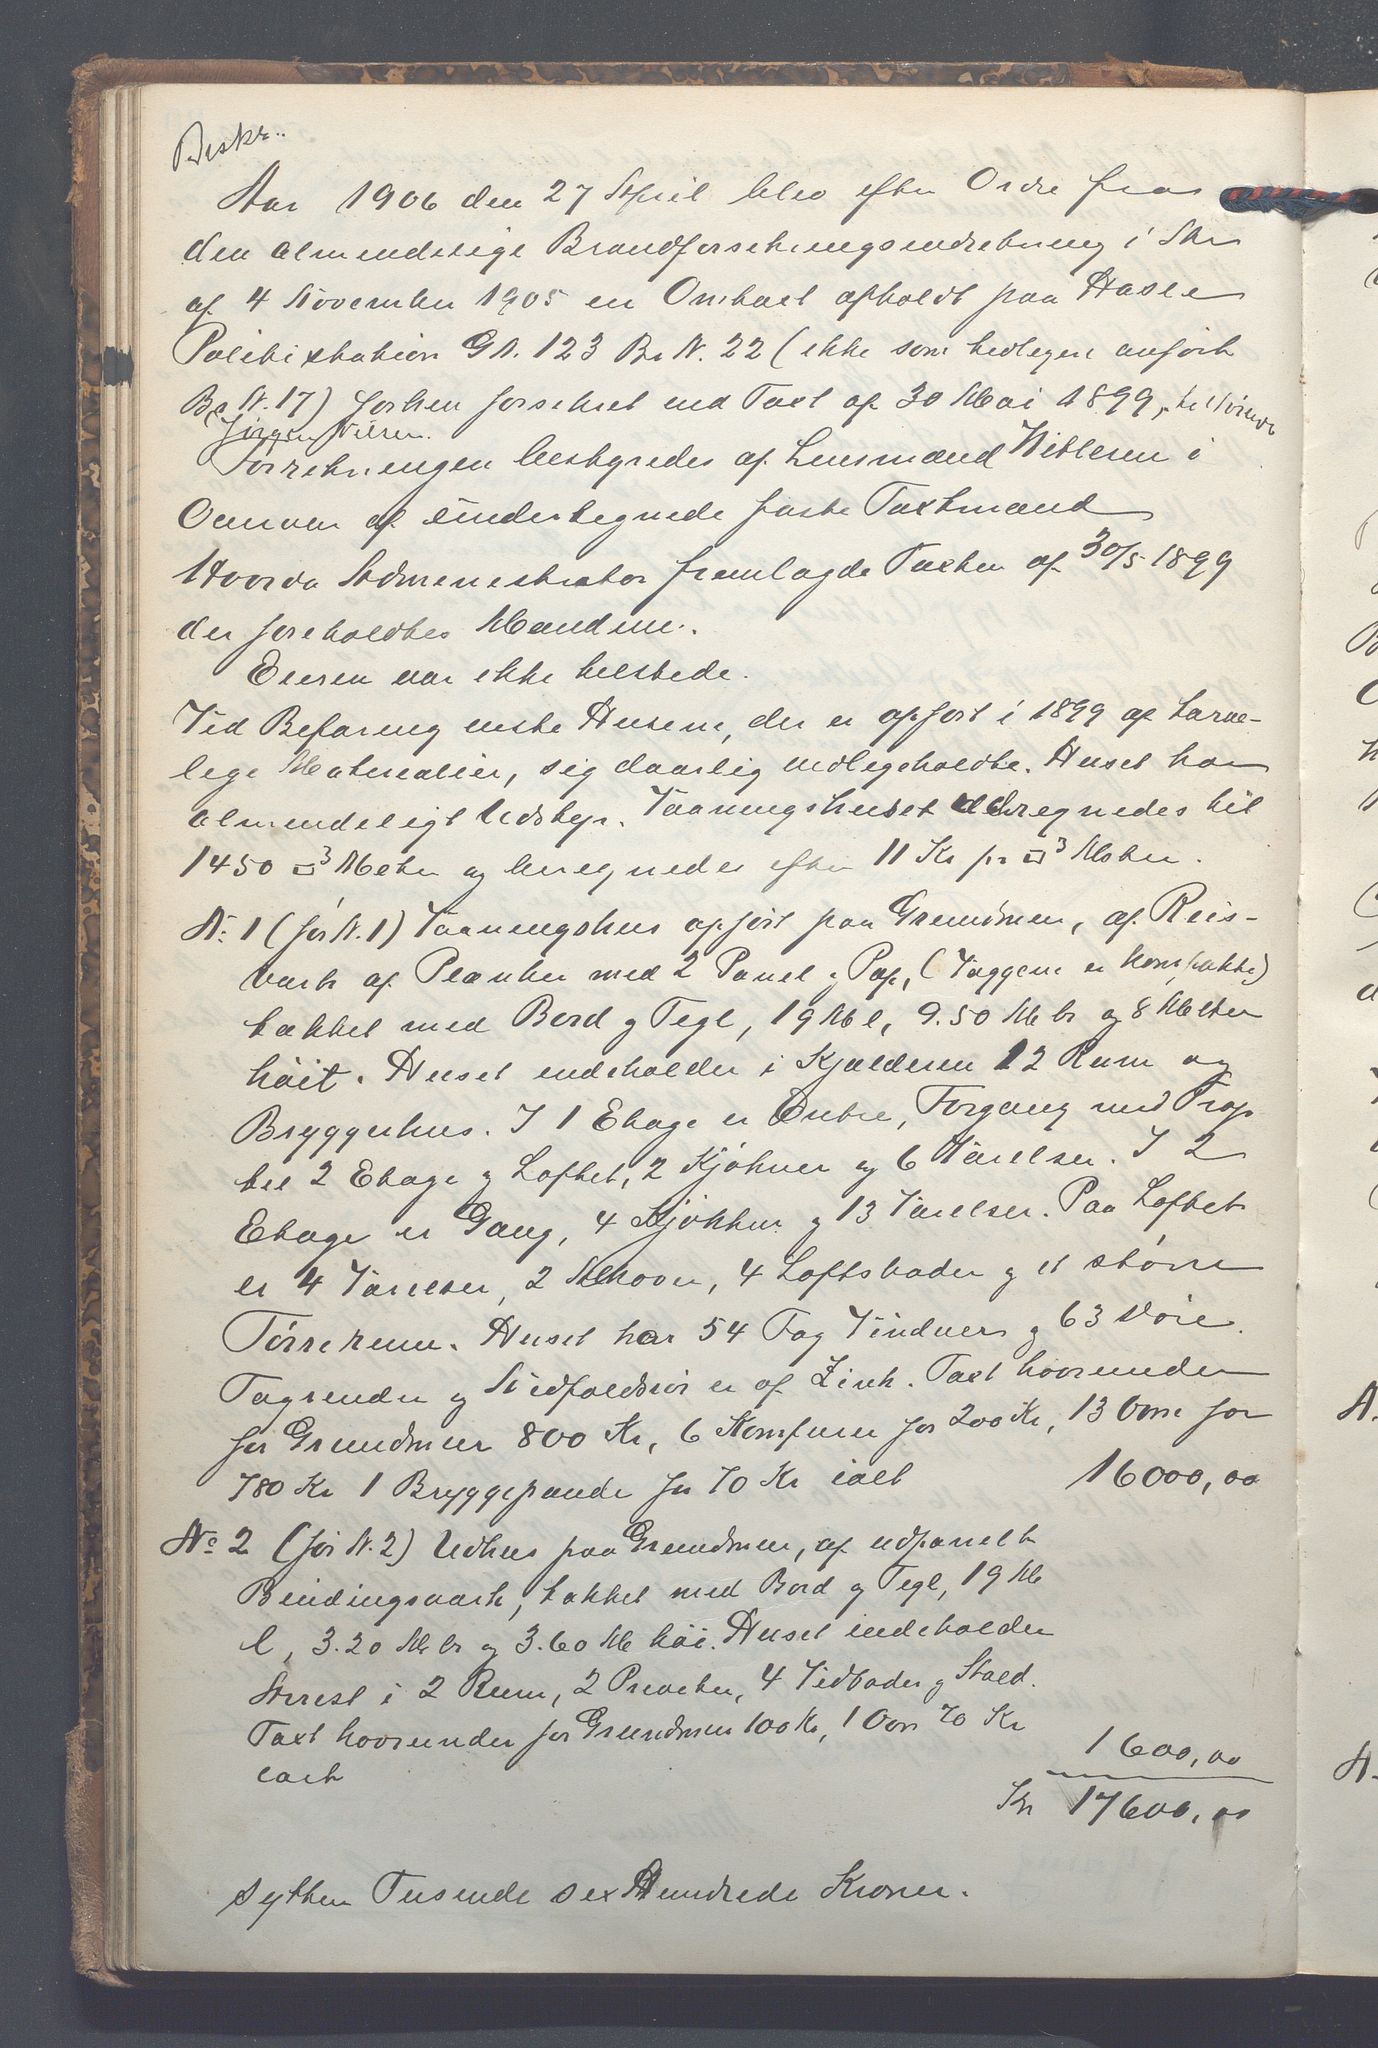 Beskr..
Aar 1906 den 27 April blev efter Ordre fra
den almindelige Brandforsikringsindretning i Skr
af 4 November 1905 en Omtaxt afholdt paa Hasle
Politistation GN. 123 Br N. 22 (ikke som tidligere anført
Br N. 17) forhen forsikret ved Taxt af 30 Mai 1899, tilhørende
Jørgen Nilsen.
Forretningen bestyredes af Lensmand Wittersen i
Overvær af undertegnede faste Taxtmænd
Hvorda Administrator fremlagde Taxten af 30/5 1899
der foreholdtes Mændene.
Eieren var ikke tilstede.
Ved Befaring viste Husene, der er opført i 1899 af tarve-
lige Materialier, sig daarlig vedligeholdte. Huset har
almindeligt Udstyr. Vaaningshuset udregnedes til
1450 □3 Meter og beregnedes efter 11 Kr pr □3 Meter.
No 1 (før N. 1) Vaaningshus opført paa Grundmur, af Reis-
værk af Planker med 2 Panel & Pap, (Væggene er kompakte)
tækket med Bord og Tegl, 19 M l, 9.50 M br og 8 Meter
høit. Huset indeholder i Kjælderen 12 Rum og
Bryggerhus. I 1 Etage er Entre, Forgang med Trap
til 2 Etage og Loftet, 2 Kjøkner og 6 Værelser. I 2
Etage er Gang, 4 Kjøkken og 13 Værelser. Paa Loftet
er 4 Værelser, 2 Alkover, 4 Loftsboder og et større
Tørrerum. Huset har 54 Fag Vinduer og 63 Døre.
Tagrender og Nedfaldsrør er af Zink. Taxt hvorunder
for Grundmur 800 Kr, 6 Komfurer for 200 Kr, 13 Ovne for
780 Kr 1 Bryggepande for 70 Kr ialt 16000,00
No 2 (før N. 2) Udhus paa Grundmur, af udpanelt
Bindingsværk, tækket med Bord og Tegl, 19 M
l, 3.20 M br og 3.60 M høi. Huset indeholder
i 2 Rum, 2 Priveter, 4 Vedboder og Stald.
Taxt hvorunder for Grundmur 100 Kr, 1 Ovn 70 Kr
ialt 1600,00
Kr 17600,00
sytten Tusinde sex Hundrede Kroner.